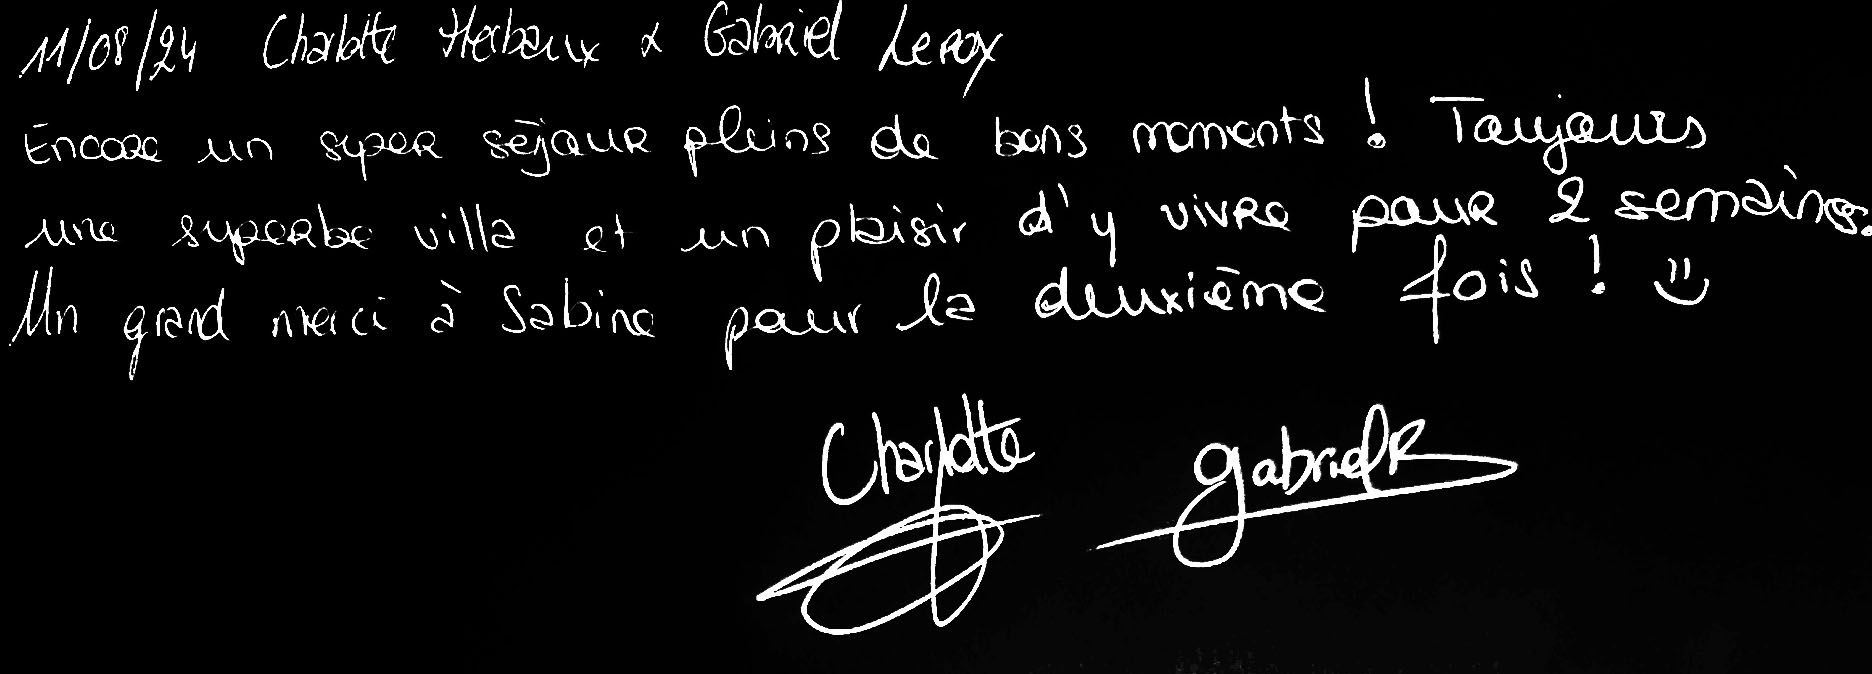 11/08/24 Charlotte Herbaux & Gabriel Leroy
Encore un super séjour pleins de bons moments ! Toujours
une superbe villa et un plaisir d'y vivre pour 2 semaines.
Un grand merci à Sabine pour la deuxième fois ! =)
Charlotte Gabriel